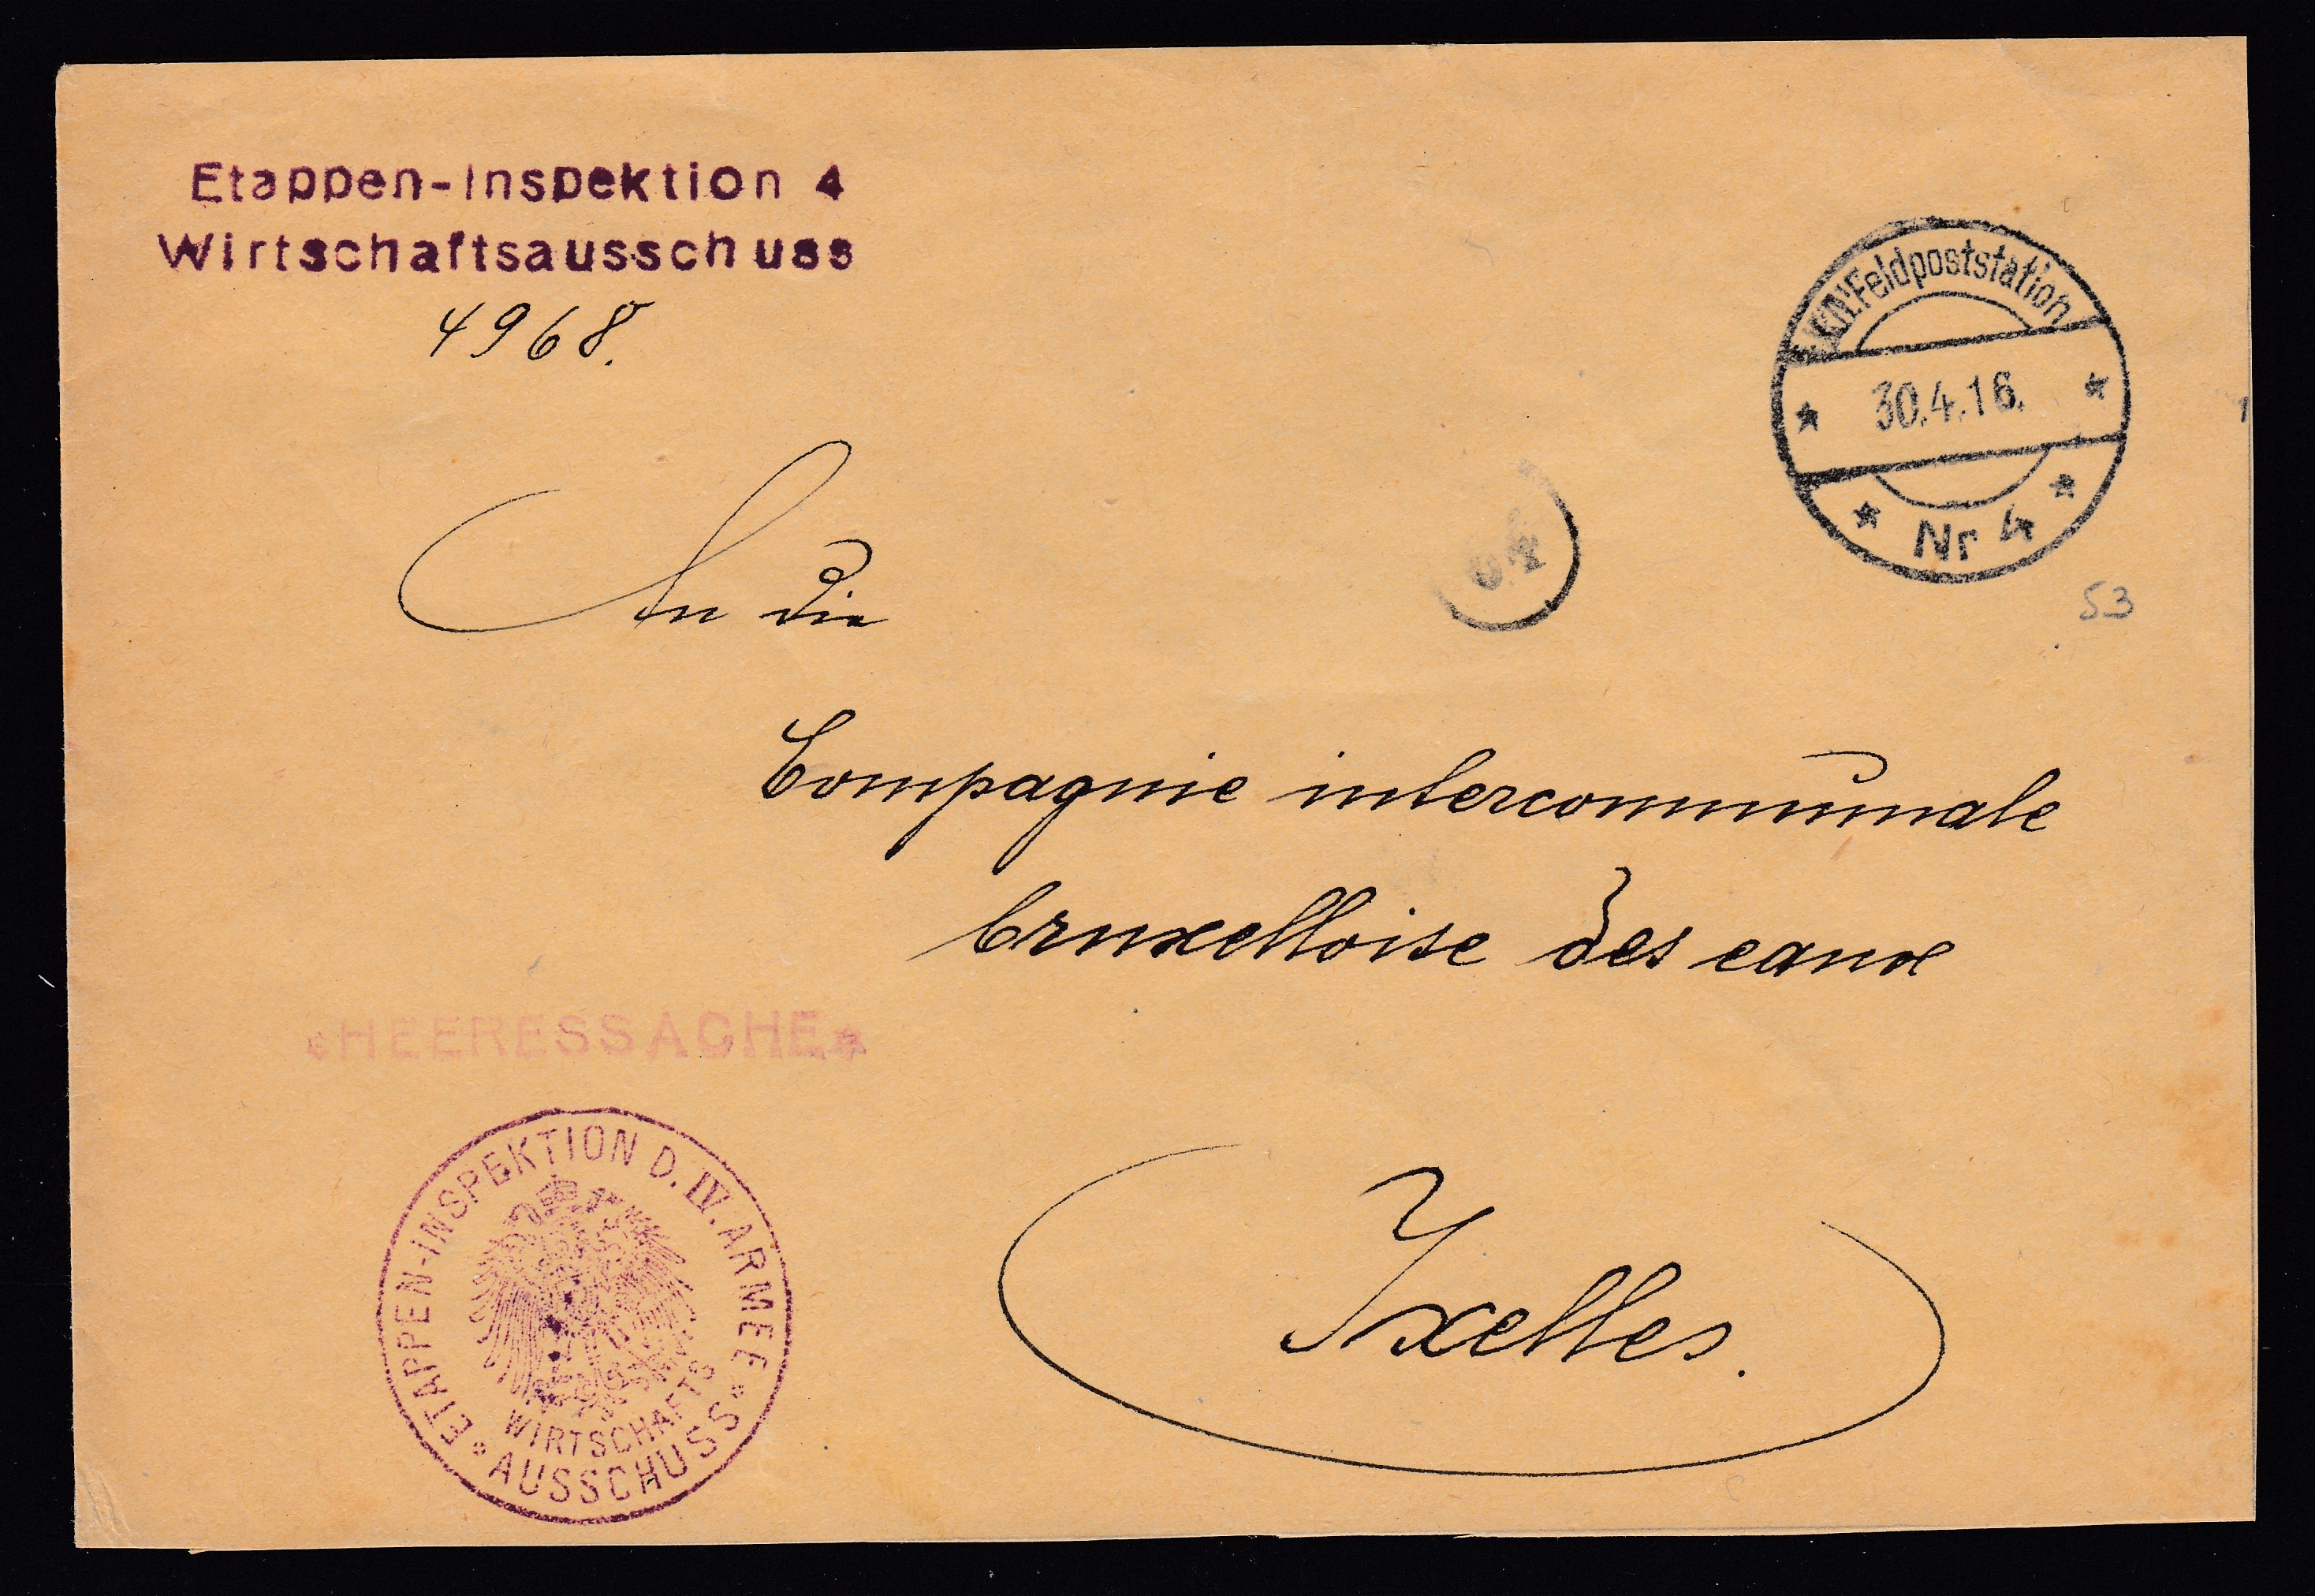 Etappen-Inspektion 4
Wirtschaftsausschuss
4968.
Feldpoststation
30.4.16.
Nr 4
53
An die
Compagnie intercommunale
bruxelloise des eaux
*HEERESSACHE*
ETAPPEN-INSPEKTION D. IV. ARMEE
WIRTSCHAFTS
AUSSCHUSS
Ixelles.